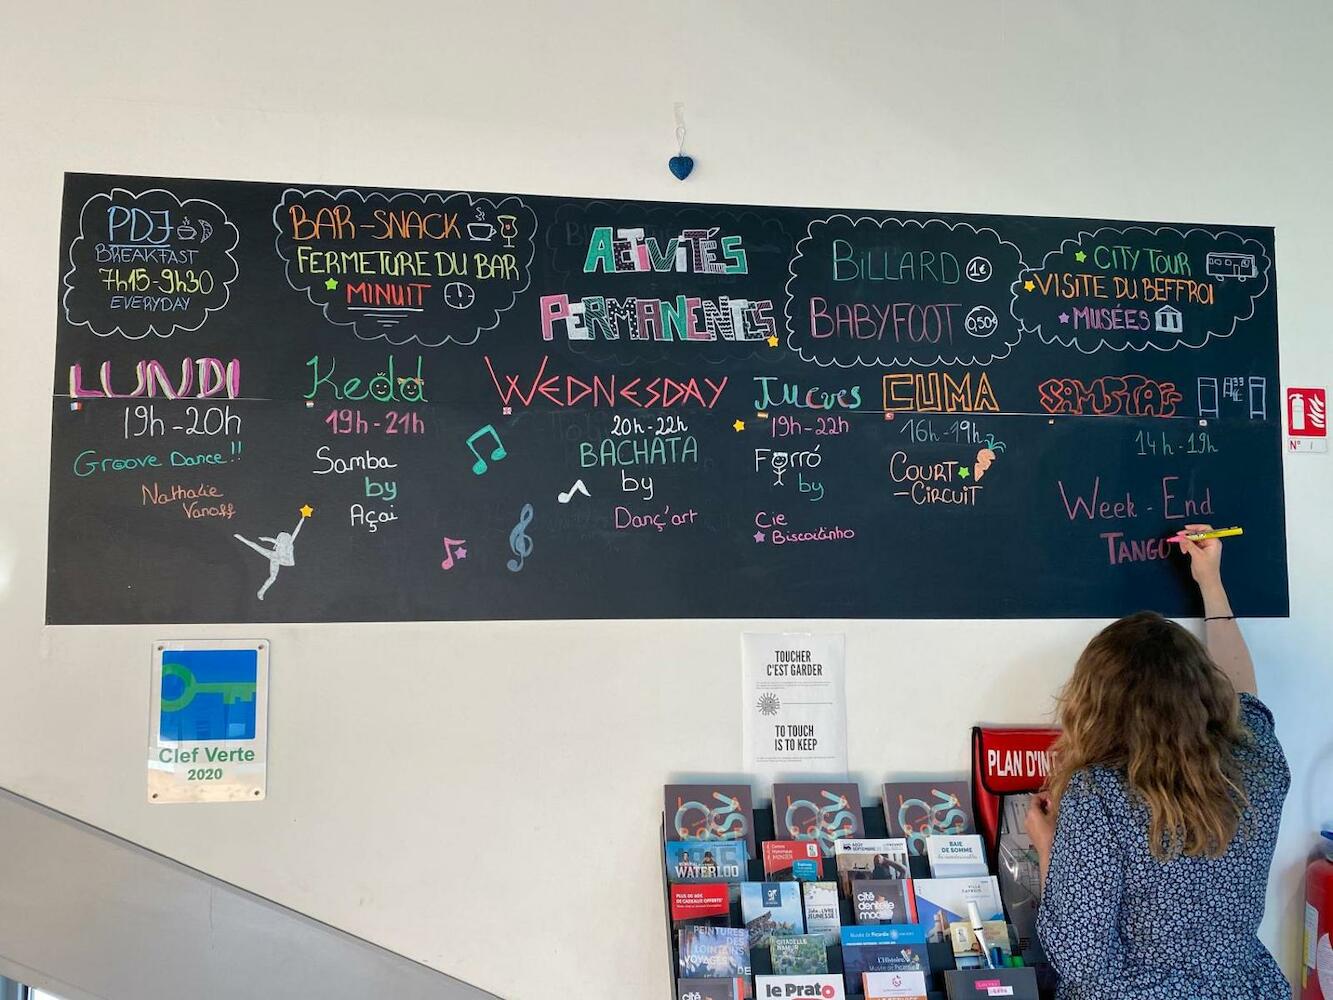 PDJ
BREAKFAST
7h15-9h30
EVERYDAY
BAR-SNACK
FERMETURE DU BAR
MINUIT
ACTIVITÉS
PERMANENTES
BILLARD 1€
BABYFOOT 0,50€
CITY TOUR
VISITE DU BEFFROI
MUSÉES
LUNDI
19h-20h
Groove Dance!!
Nathalie
Vanoff
Kedd
19h-21h
Samba
by
Açai
WEDNESDAY
20h-22h
BACHATA
by
Danç'art
Jueves
19h-22h
Forró
by
Cie
Biscoitinho
CUMA
16h-19h
COURT
-CIRCUIT
SAMSTAG
14h-19h
Week-End
TANGO
N° 1
Clef Verte
2020
TOUCHER
C'EST GARDER
TO TOUCH
IS TO KEEP
PLAN D'IN
WATERLOO
BAIE
DE SOMME
PLUS DE 60€
DE CADEAUX OFFERTS
JEUNESSE
cité
dentelle
mode
PEINTURES
DES
LOINTAINS
VOYAGES
CITADELLE
NAMUR
Musée de Picardie
L'Histoire
le Prato
cité